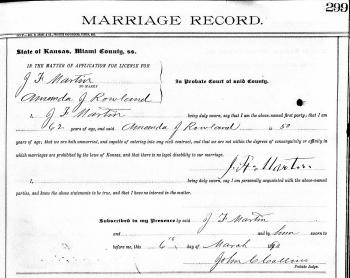 299
MARRIAGE RECORD.
State of Kansas, Miami County, ss.
IN THE MATTER OF APPLICATION FOR LICENSE FOR
J F Martin
TO MARRY
Amanda J Rowland
In Probate Court of said County.
I, J F Martin being duly sworn, say that I am the above-named first party; that I am
62 years of age, and said Amanda J Rowland is 50
years of age; that we are both unmarried, and capable of entering into any civil contract, and that we are not within the degrees of consanguinity or affinity in
which marriages are prohibited by the laws of Kansas, and that there is no legal disability to our marriage.
J. F. Martin
I, being duly sworn, say I am personally acquainted with the above-named
parties, and know the above statements to be true, and that I have no interest in the matter.
Subscribed in my Presence by said J F Martin
and by him sworn to
before me, this 6th day of March
John C Collins
Probate Judge.